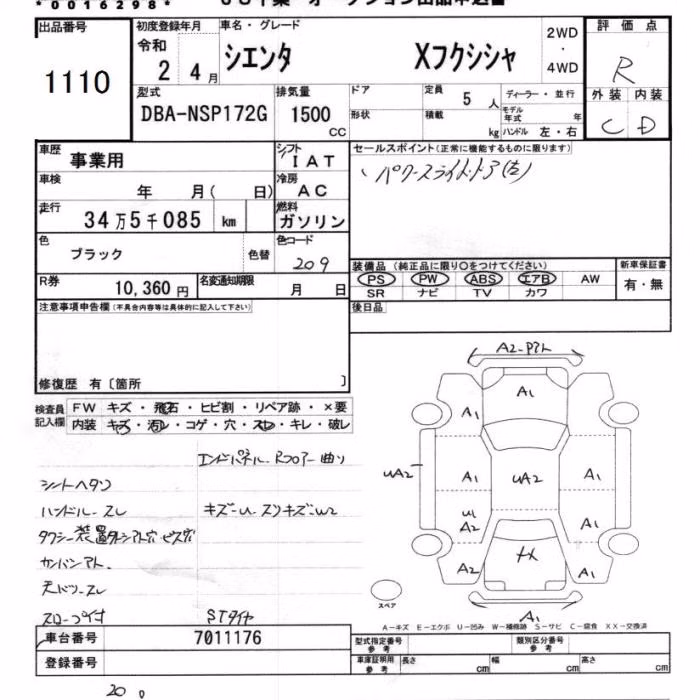 * 0 0 1 6 2 9 8 *
出品番号 初度登録年月 車名・グレード 評価点
1110 令和 2 4月 シエンタ Xフクシシャ 2WD ・ 4WD R
型式 排気量 ドア 定員 5人 ディーラー・並行 外装 内装
DBA-NSP172G 1500 CC 形状 積載 kg モデル年式 年 ハンドル 左・右 C D
車歴 事業用 シフト IAT セールスポイント(正常に機能するものに限ります)
車検 年 月( 日) 冷房 AC パワースライドドア(左)
走行 34万5千085 km 燃料 ガソリン
色 ブラック 色替 色コード 209
装備品(純正品に限り○をつけてください) 新車保証書
R券 10,360円 名変通知期限 月 日 PS PW ABS エアB AW 有・無
SR ナビ TV カワ
注意事項申告欄(不具合内容等は具体的に記入して下さい) 後日品
修復歴 有〔箇所 〕
検査員記入欄 FW キズ・飛石・ヒビ割・リペア跡・×要
内装 キズ・汚レ・コゲ・穴・スレ・キレ・破レ
エンドパネル、Rフロアー曲り
シートヘタリ
ハンドルースレ キズーU スリキズーW2
タクシー装置ターシアト穴 ビス穴
カンバンアト、
天ドリースレ
スロープ付 STタイヤ
A2-アト
A1
A1 A1
UA2 A1 UA2 A1
U1 A2 A1
A2 X A1
スペア A1
A－キズ E－エクボ U－凹み W－補修跡 S－サビ C－腐食 XX－交換済
車台番号 7011176 型式指定番号 参考 類別区分番号 参考
登録番号 車庫証明用 参考 長さ cm 幅 cm 高さ cm
20